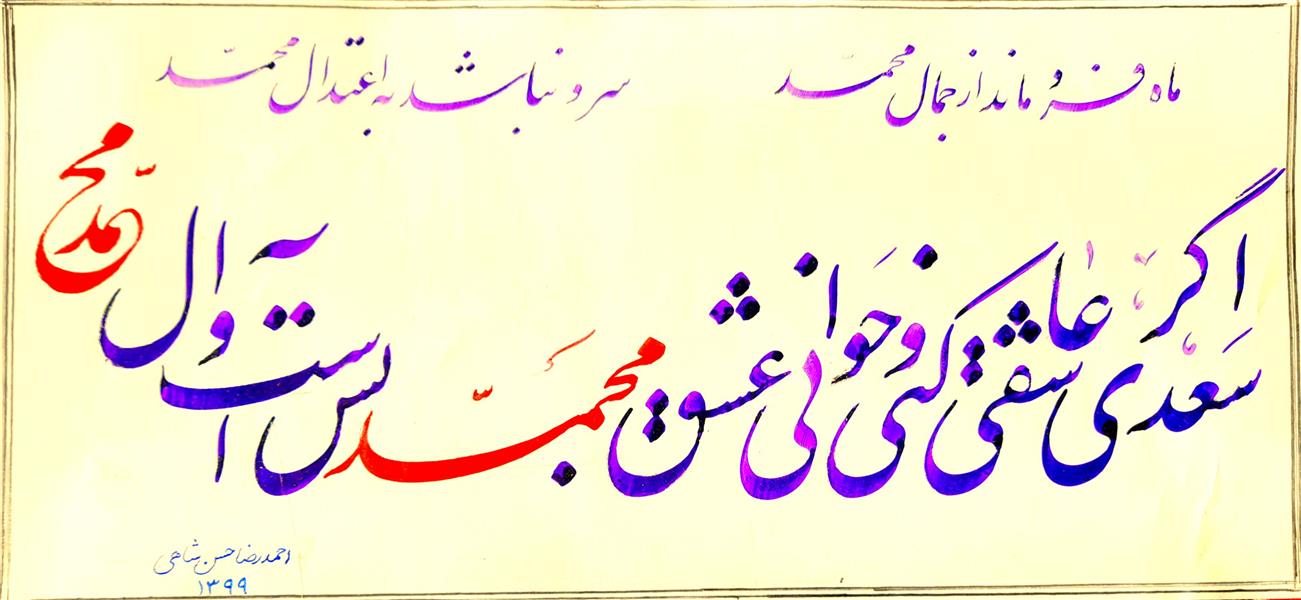 ماه فرو ماند از جمال محمّد سرو نباشد به اعتدال محمّد
سعدی اگر عاشقی کنی و جوانی عشق محمّد بس است و آل محمّد
احمدرضا حسن شاهی
۱۳۹۹